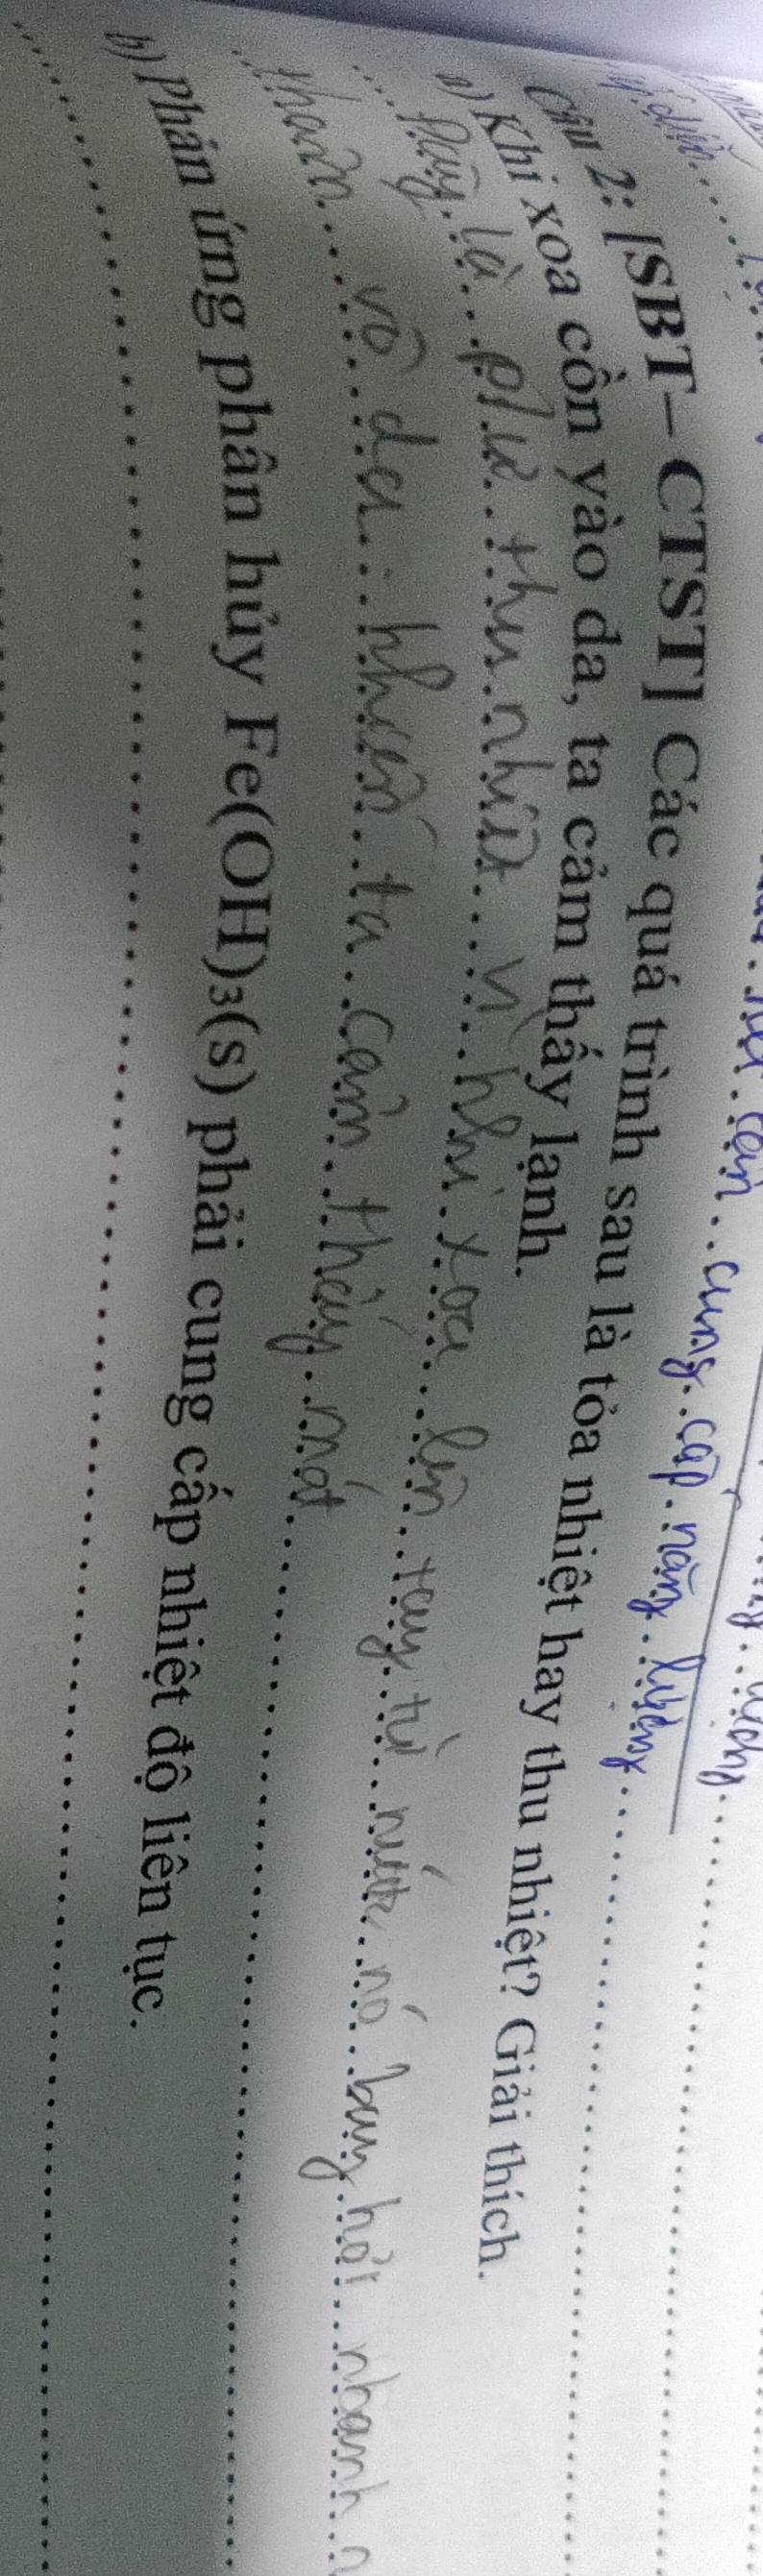 cần cung cấp năng lượng
Câu 2: [SBT – CTST] Các quá trình sau là tỏa nhiệt hay thu nhiệt? Giải thích.
a) Khi xoa cồn vào da, ta cảm thấy lạnh.
là pứ thu nhiệt vì khi xoa lên tay từ nước nó bay hơi nhanh
vô da khiến ta cảm thấy mát
b) Phản ứng phân hủy Fe(OH)3(s) phải cung cấp nhiệt độ liên tục.